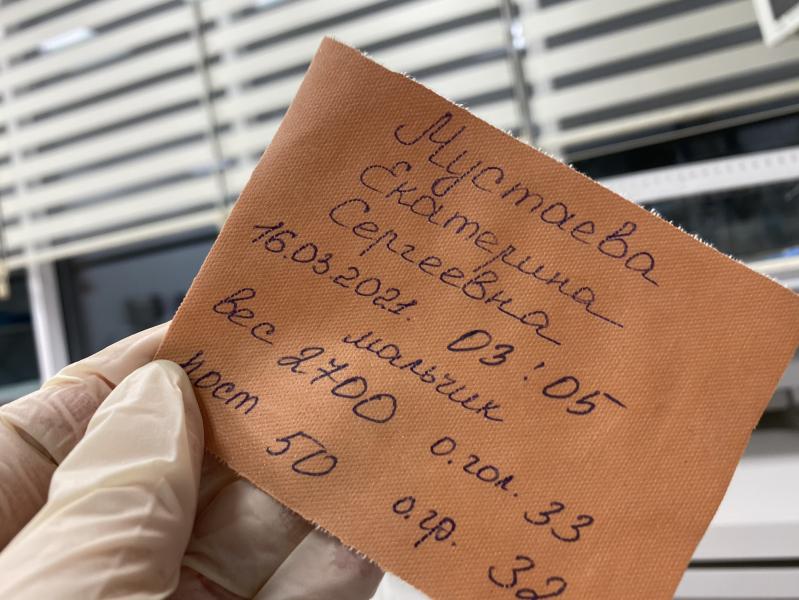 Мустаева
Екатерина
Сергеевна
16.03.2021. 03:05
мальчик
вес 2700 о.гол. 33
рост 50 о.гр. 32